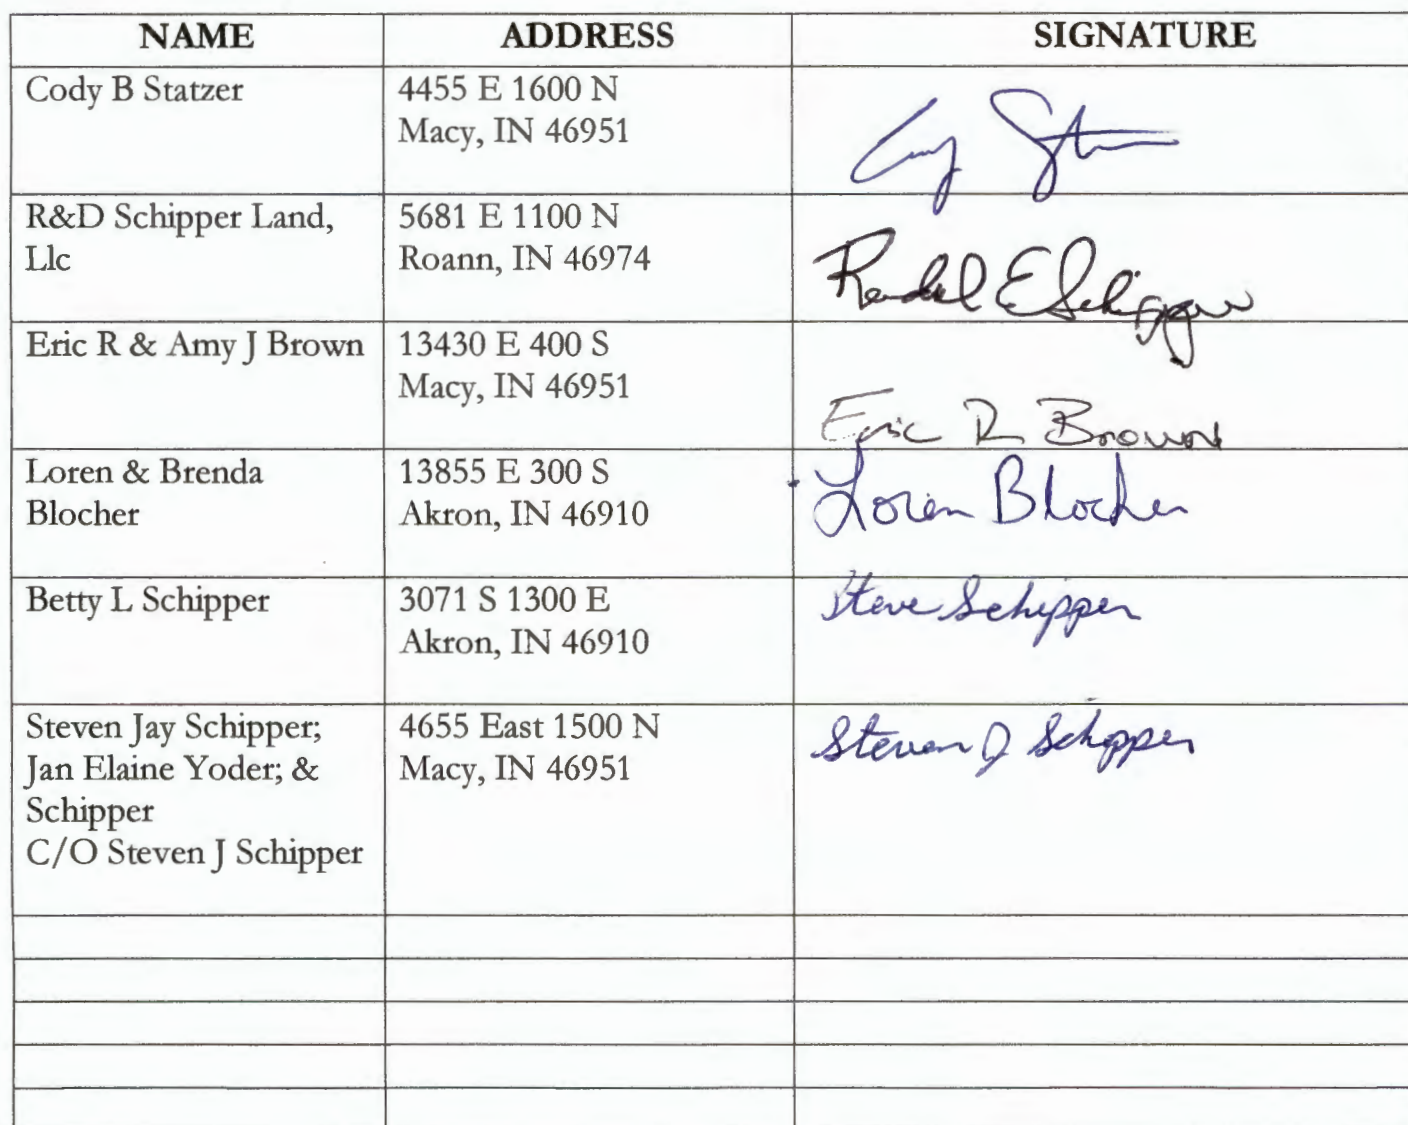 NAME ADDRESS SIGNATURE
Cody B Statzer
4455 E 1600 N
Macy, IN 46951
R&D Schipper Land,
Llc
5681 E 1100 N
Roann, IN 46974
Randal E Schipper
Eric R & Amy J Brown
13430 E 400 S
Macy, IN 46951
Eric R Brown
Loren & Brenda
Blocher
13855 E 300 S
Akron, IN 46910
Loren Blocher
Betty L Schipper
3071 S 1300 E
Akron, IN 46910
Steve Schipper
Steven Jay Schipper;
Jan Elaine Yoder; &
Schipper
C/O Steven J Schipper
4655 East 1500 N
Macy, IN 46951
Steven J Schipper